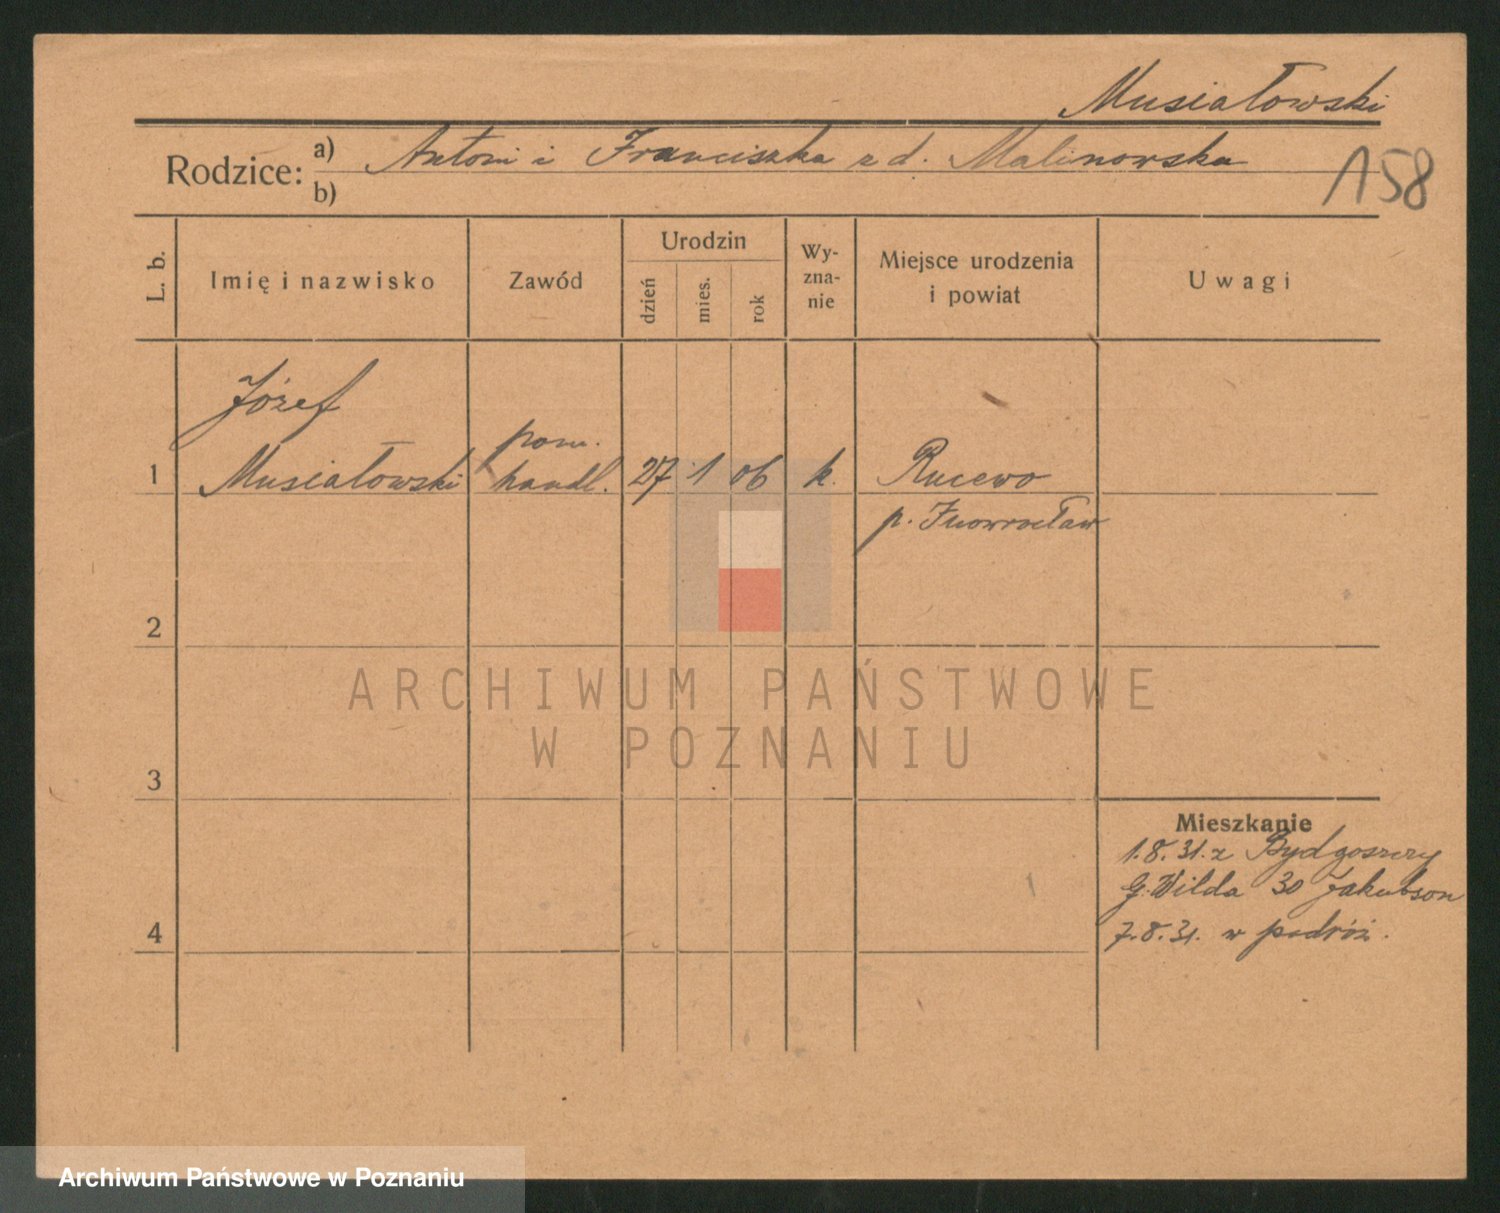 Musiałowski
Rodzice: a) Antoni i Franciszka z d. Malinowska
b)
158
L. b.
Imię i nazwisko
Zawód
Urodzin
dzień
mies.
rok
Wy-
zna-
nie
Miejsce urodzenia
i powiat
Uwagi
Józef
pom.
1 Musiałowski handl. 27 1 06 k. Rucewo
p. Inowrocław
2
3
4
Mieszkanie
1.8.31. z Bydgoszczy
G. Wilda 30 Jakubson
7.8.31. w podróż.
ARCHIWUM PAŃSTWOWE
W POZNANIU
Archiwum Państwowe w Poznaniu